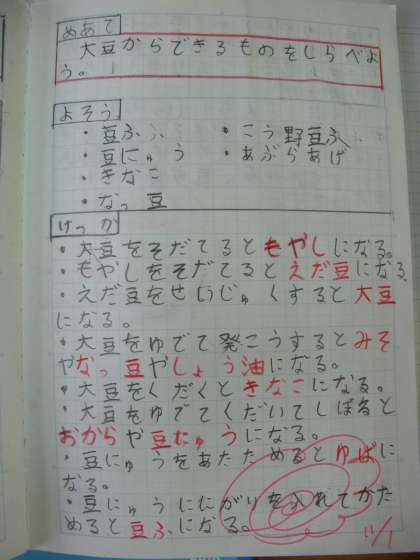 めあて
大豆からできるものをしらべよ
う。
よそう
・豆ふ ・こう野豆ふ
・豆にゅう ・あぶらあげ
・きなこ
・なっ豆
けっか
・大豆をそだてるともやしになる。
・もやしをそだてるとえだ豆になる
・えだ豆をせいじゅくすると大豆
になる。
・大豆をゆでて発こうするとみそ
やなっ豆やしょう油になる。
・大豆をくだくときなこになる。
・大豆をゆでてくだいてしぼると
おからや豆にゅうになる。
・豆にゅうをあたためるとゆばに
なる。
・豆にゅうににがりを入れてかた
めると豆ふになる。
11/1